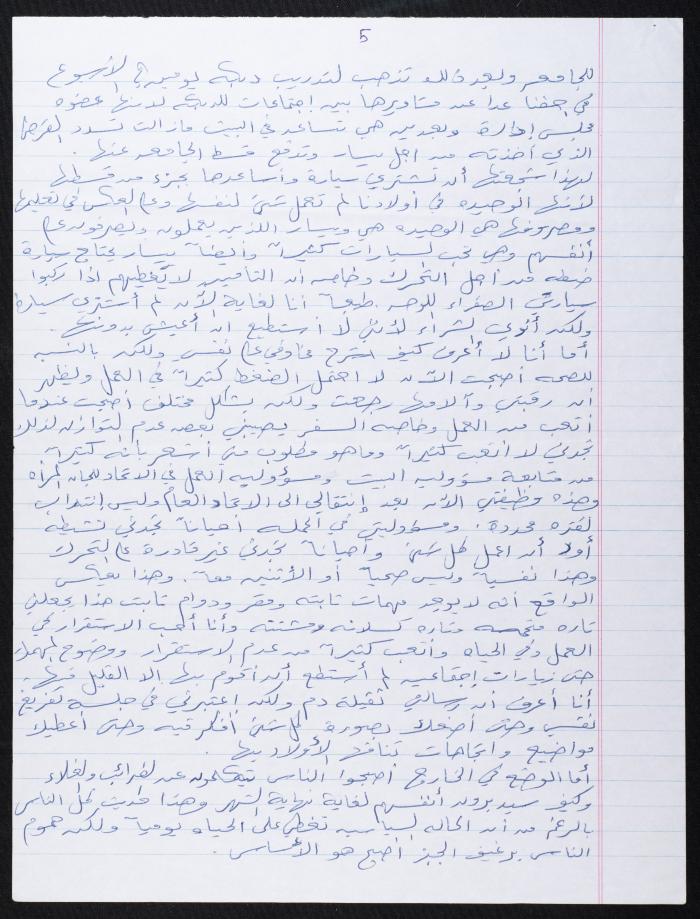 5
للجامعه وبعد ذلك تذهب لتدريب دبكه يوميه في الأسبوع
في عدا عن مشاويرها بين إجتماعات للدبكه لانها عضوه
مجلس إدارة وبعدين هي تساعد في البيت مازالت تسدد القرض
الذي أخذته من اجل يسار وتدفع قسط الجامعه عنها.
لهذا شجعتها أن تشتري سيارة وأساعدها بجزء من قسطها
لأنها الوحيده في أولادنا لم تعمل شئ لنفسها وعلى العكس في تعليمها
ومصروفها هي الوحيده هي ويسار اللذين يعملون ويصرفون على
أنفسهم وهي تحب السيارات كثيراً وأيضاً يسار يحتاج سيارة
من اجل التحرك وخاصه أن التأمين لا يغطيهم اذا ركبوا
سيارتي الصفراء للوحده. طبعاً أنا لغاية الآن لم أشتري سيارة
ولكن أنوي الشراء لأنني لا أستطيع ان أعيش بدونها.
أما أنا لا أعرف كيف اشرح عن نفسي ولكن بالنسبه
للصحه أصبحت الآن لا احتمل الضغط كثيراً في العمل ويظهر
أن رقبتي وآلامها رجعت ولكن بشكل مختلف أصبحت عندما
أتعب من العمل وخاصه السفر يصيبني بعض عدم التوازن لذلك
تجدني لا اتعب كثيراً وما هو مطلوب مني أشعر بأنه كثير
من متابعة مسؤوليه البيت ومسؤوليه العمل في الاتحاد للجان المرأه
وهذه وظيفتي الآن بعد إنتقالي الى الاتحاد العام وليس إنتداب
لفتره محددة. ومسؤوليتي في الحمله احياناً تجدني نشيطه
أود أن اعمل كل شئ وأحياناً تجدني غير قادرة على التحرك
وهذا نفسياً وليس صحياً أو الأثنين معاً. وهذا يعكس
الواقع أنه لا يوجد مهمات ثابته ومقر ودوام ثابت هذا يجعلني
تاره متحمسه وتاره كسلانه ومشتته وأنا أحب الاستقرار في
العمل وفي الحياه وأتعب كثيراً من عدم الاستقرار ووضوح المهمات
حتى زيارات إجتماعيه لم أستطع أن أقوم بها الا القليل منها.
أنا أعرف أن رسالتي ثقيلة دم ولكن اعتبرني في جلسة تفريغ
نفسي وحتى أضعك بصورة كل شئ أفكر فيه وحتى أعطيك
مواضيع واتجاهات تناقش الأولاد بها.
أما الوضع في الخارج أصبحوا الناس يتكلمون عن الضرائب والغلاء
وكيف سيدبرون أنفسهم لغاية نهاية الشهر وهذا حديث كل الناس
بالرغم من أن الحاله السياسيه تغطي على الحياه يومياً ولكن هموم
الناس برغيف الخبز أصبح هو الأساس.